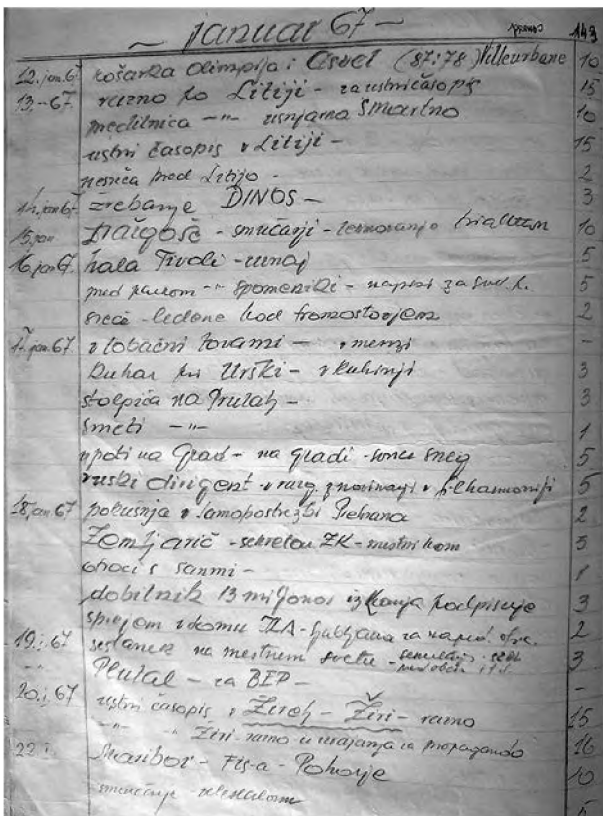 ~ januar 67 ~ prenos 143
12. jan. 67 košarka Olimpija : Asvel (87:78) Villeurbane 10
13.-67 razno po Litiji - za ustni časopis 15
predilnica -"- usnjarna Šmartno 10
ustni časopis v Litiji - 15
nesreča pred Litijo - 2
14. jan 67. žrebanje DINOS - 3
15. jan Dražgoše - smučanji - 10
16. jan 67. hala Tivoli - zunaj 5
pred parkom -"- spomeniki - napisi 5
ledene pod 2
17. jan. 67 v tobačni tovarni - v menzi -
kuhar pri Urški - v kuhinji 3
stolpiča na Prulah - 3
smeti -"- 1
na poti na Grad - na gradi - sonce sneg 5
ruski dirigent v filharmoniji 5
18. jan. 67 pokušnja v samopostrežbi Prehrana 2
Zemljarič - sekretar ZK - mestni kom 3
otroci s sanmi - 1
dobitnik 13 milijonov iz Kranja podpisuje 3
sprejem v domu JLA - Ljubljana 2
19. i. 67 sestanek na mestnem svetu - 3
-"- Plutal - za BEP - -
20. i. 67 ustni časopis v Žireh - Žiri - razno 15
-"- -"- Žiri razno propagando 16
22. i. Maribor - Fis-a - Pohorje 10
smučanje - veleslalom 5